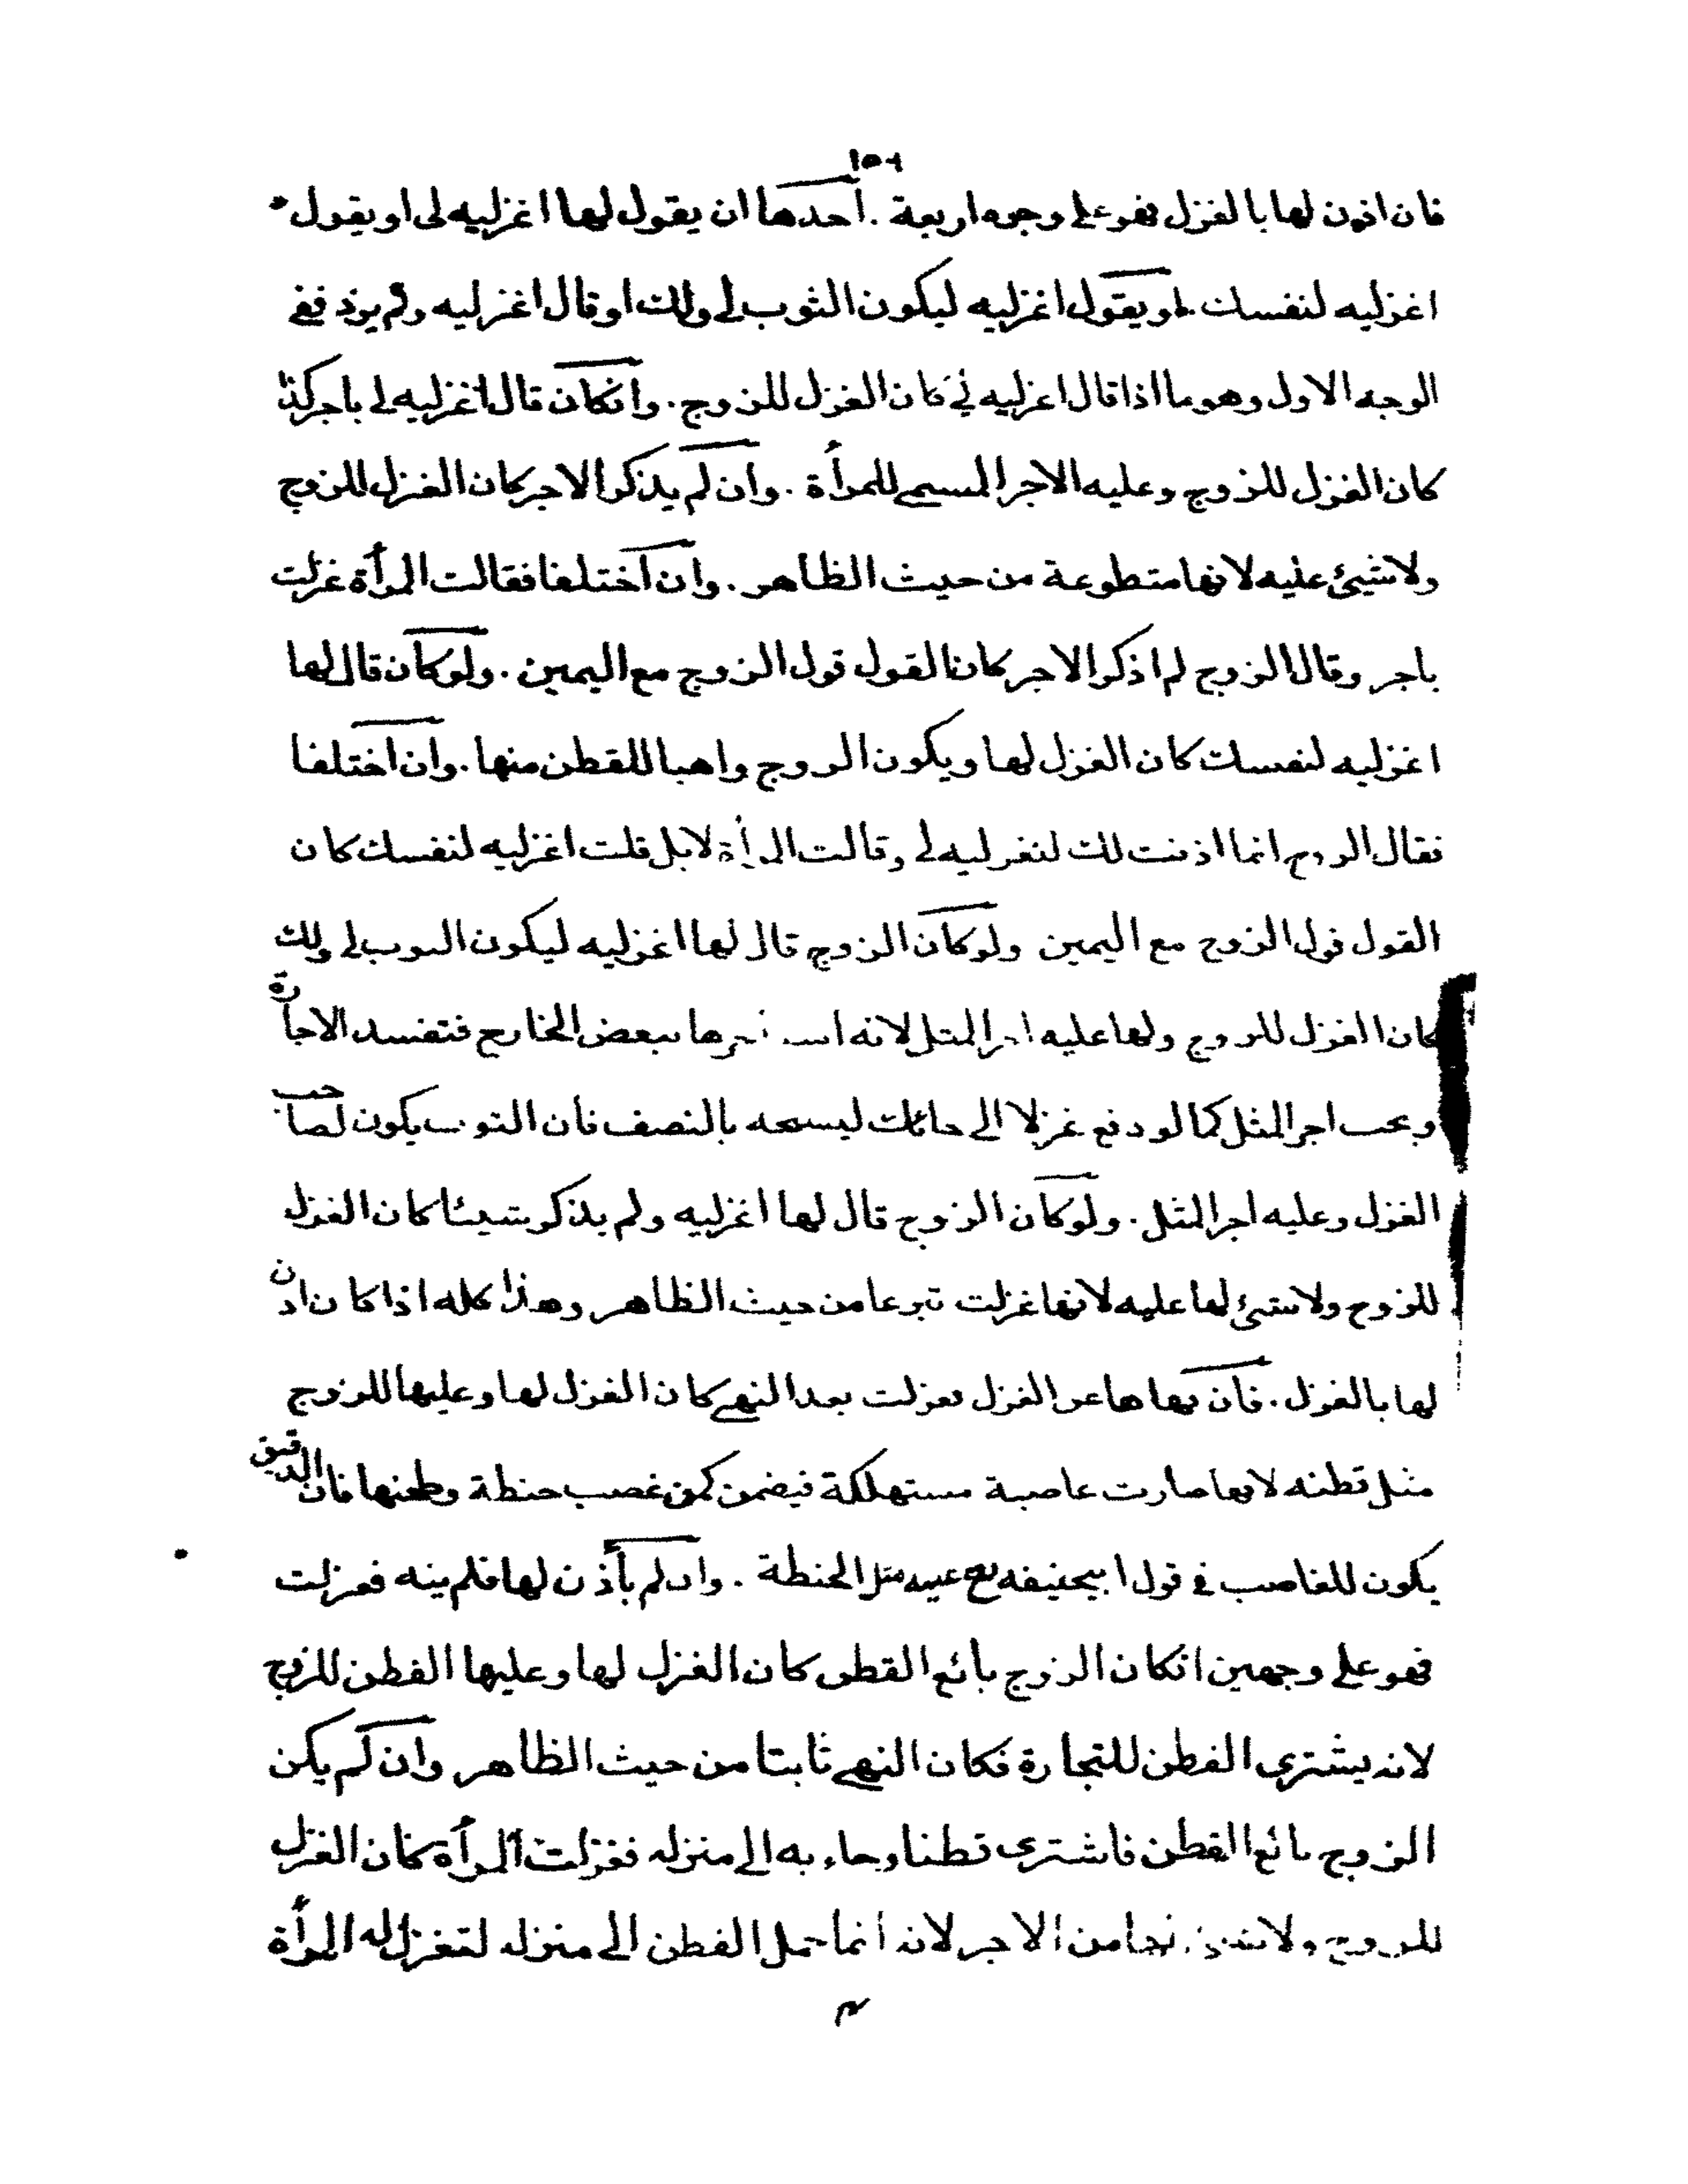 ١٥٦
فان اذن لها بالغزل فهو على وجوه اربعة . احدها ان يقول لها اغزليه لى او يقول
اغزليه لنفسك او يقول اغزليه ليكون الثوب لى ولك او قال اغزليه ولم يزد ففى
الوجه الاول وهو ما اذا قال اغزليه لى كان الغزل للزوج . وانكان قال اغزليه لى باجر كذا
كان الغزل للزوج وعليه الاجر المسمى للمرأة . وان لم يذكر الاجر كان الغزل للزوج
ولا شيئ عليه لانها متطوعة من حيث الظاهر . وان اختلفا فقالت المرأة غزلت
باجر وقال الزوج لم اذكر الاجر كان القول قول الزوج مع اليمين . ولو كان قال لها
اغزليه لنفسك كان الغزل لها ويكون الزوج واهبا للقطن منها . وان اختلفا
فقال الزوج انما اذنت لك لتغزليه لى وقالت المرأة لا بل قلت اغزليه لنفسك كان
القول قول الزوج مع اليمين ولو كان الزوج قال لها اغزليه ليكون الثوب لى ولك
كان الغزل للزوج ولها عليه اجر المثل لانه استأجرها ببعض الخارج فتفسد الاجارة
ويجب اجر المثل كما لو دفع غزلا الى حائك لينسجه بالنصف فان الثوب يكون لصاحب
الغزل وعليه اجر المثل . ولو كان الزوج قال لها اغزليه ولم يذكر شيئا كان الغزل
للزوج ولا شيئ لها عليه لانها غزلت تبرعا من حيث الظاهر وهذا كله اذا كان اذن
لها بالغزل . فان نهاها عن الغزل فغزلت بعد النهى كان الغزل لها وعليها للزوج
مثل قطنه لانها صارت غاصبة مستهلكة فيضمن كمن غصب حنطة وطحنها فان الدقيق
يكون للغاصب فى قول ابيحنيفه رح عليه مثل الحنطة . وان لم يأذن لها فلم ينه فغزلت
فهو على وجهين انكان الزوج بائع القطن كان الغزل لها وعليها القطن للزوج
لانه يشترى القطن للتجارة فكان النهى ثابتا من حيث الظاهر وان لم يكن
الزوج بائع القطن فاشترى قطنا وجاء به الى منزله فغزلت المرأة كان الغزل
للزوج ولا شيئ لها من الاجر لانه انما حمل القطن الى منزله لتغزل له المرأة